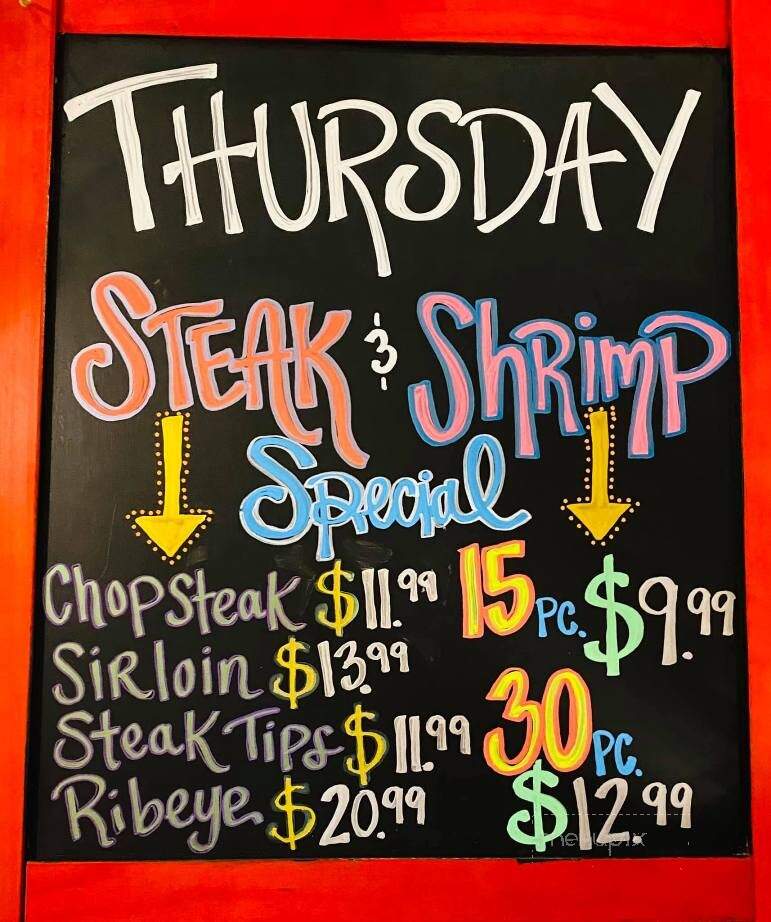 THURSDAY
STEAK & ShRimP
Special
Chopsteak $11.99
SiRloin $13.99
Steak Tips $11.99
Ribeye $20.99
15 PC. $9.99
30 PC.
$12.99